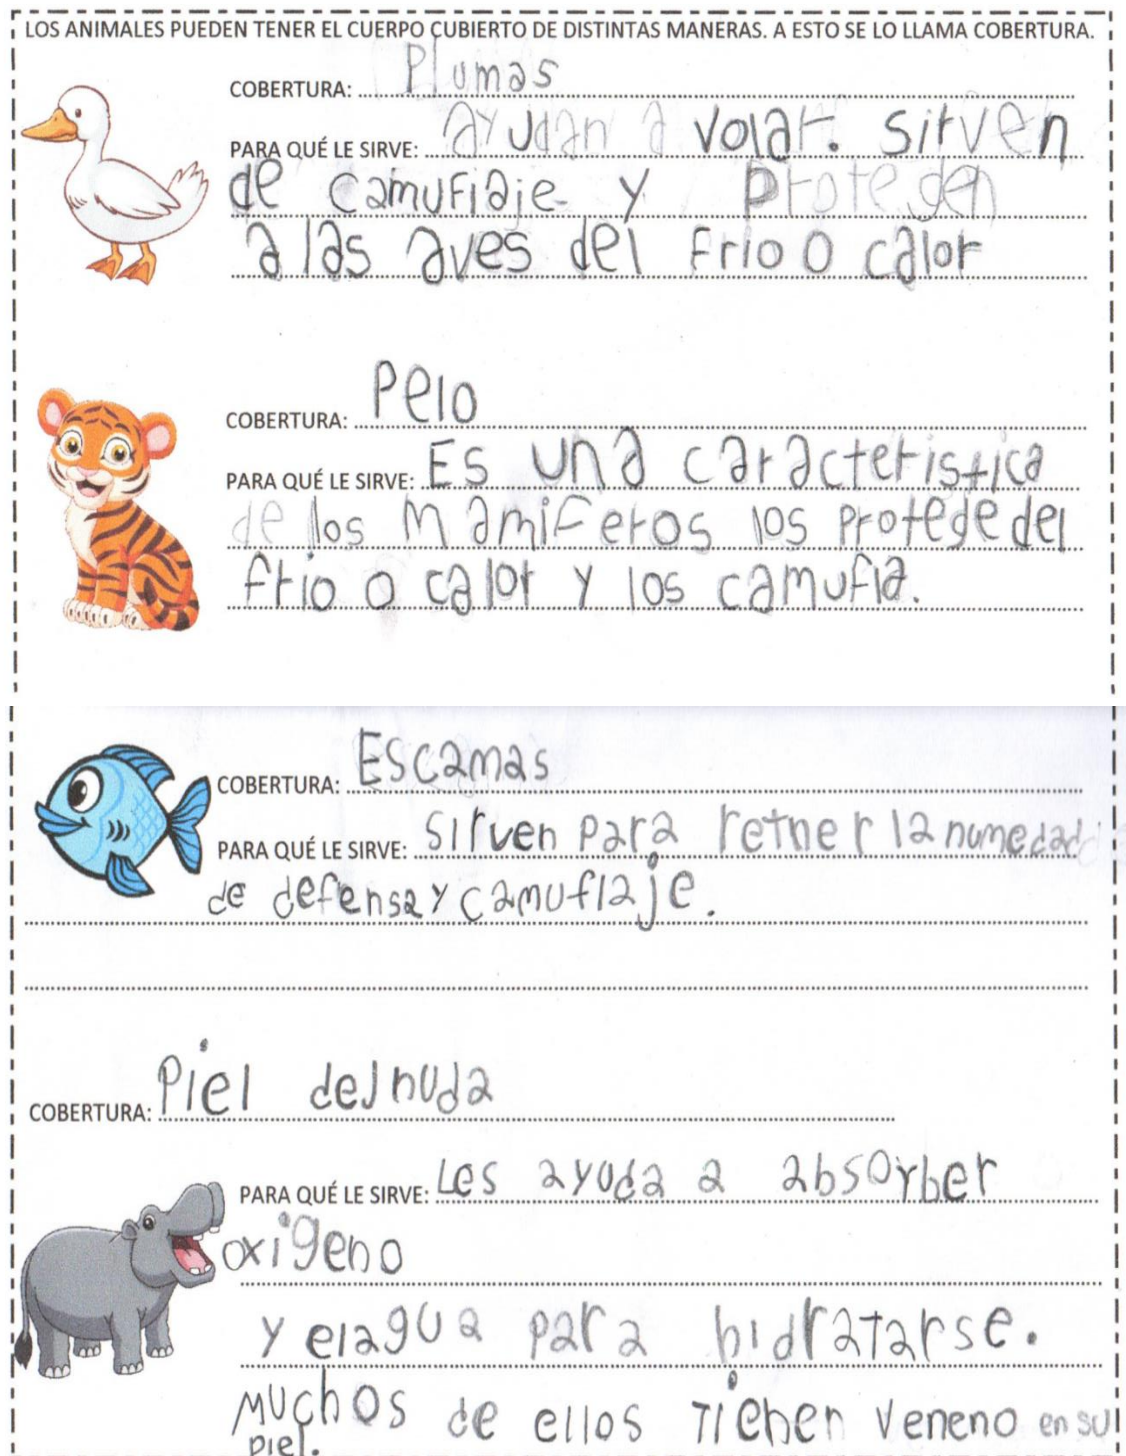 LOS ANIMALES PUEDEN TENER EL CUERPO CUBIERTO DE DISTINTAS MANERAS. A ESTO SE LO LLAMA COBERTURA.
COBERTURA: Plumas
PARA QUÉ LE SIRVE: ayudan a volar. sirven
de camuflaje y proteden
a las aves del frio o calor
COBERTURA: Pelo
PARA QUÉ LE SIRVE: Es una caracteristica
de los mamiferos los protege del
frio o calor y los camufla.
COBERTURA: Escamas
PARA QUÉ LE SIRVE: sirven para retner la numedad
de defensa y camuflaje.
COBERTURA: Piel desnuda
PARA QUÉ LE SIRVE: Les ayuda a absorber
oxigeno
y el agua para hidratarse.
Muchos de ellos tienen veneno en su
piel.